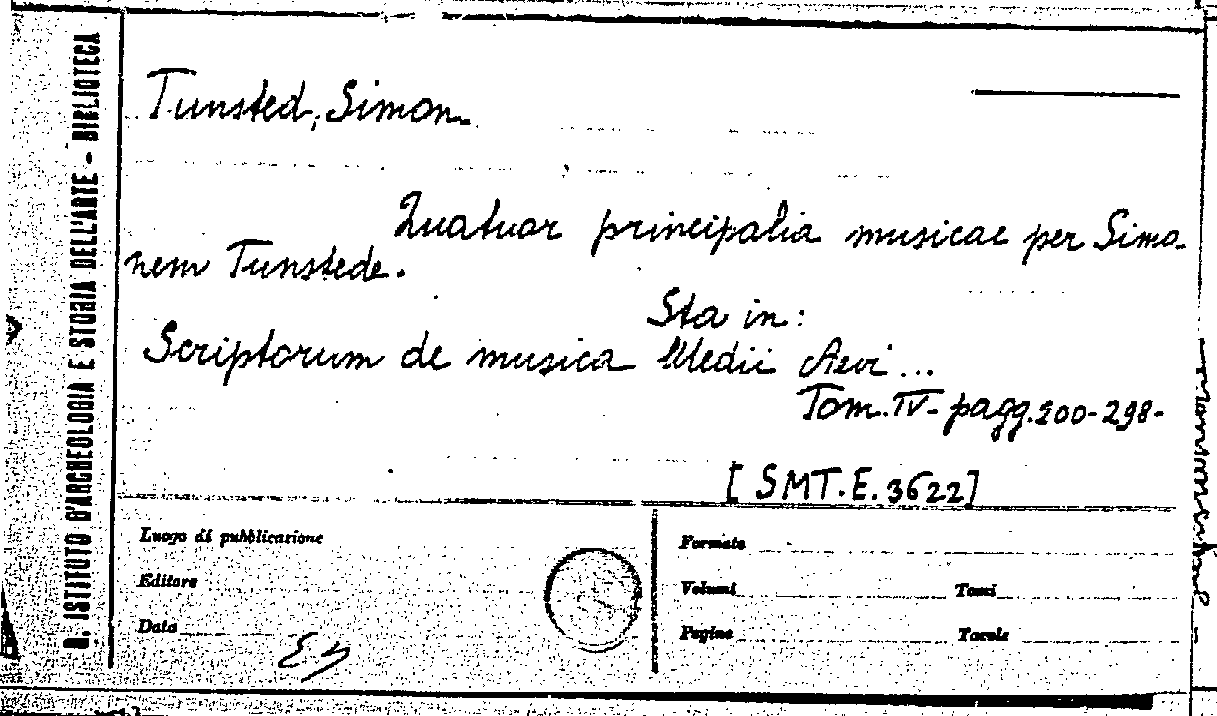 R. ISTITUTO D'ARCHEOLOGIA E STORIA DELL'ARTE - BIBLIOTECA
Tunsted, Simon.
Quatuor principalia musicae per Simo-
nem Tunstede.
Sta in:
Scriptorum de musica Medii Aevi...
Tom. IV - pagg. 200-298-
[SMT.E.3622]
Luogo di pubblicazione
Editore
Data
Formato
Volumi Tomi
Pagine Tavole